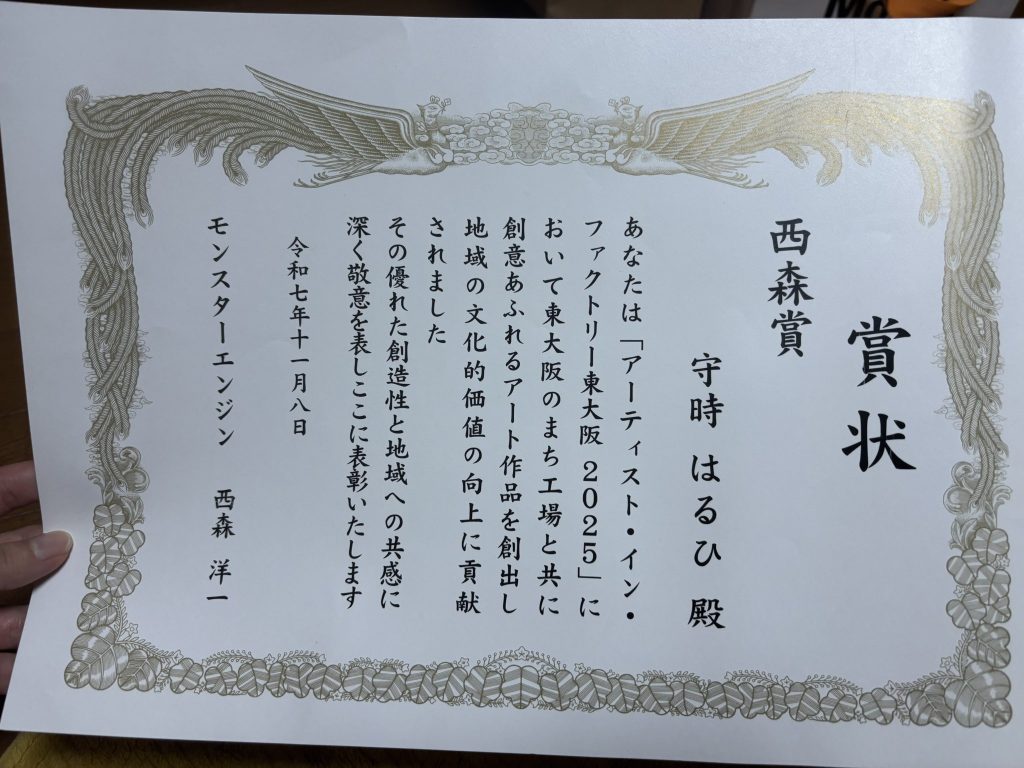 賞状
西森賞
守時 はるひ 殿
あなたは「アーティスト・イン・
ファクトリー東大阪 2025」に
おいて東大阪のまち工場と共に
創意あふれるアート作品を創出し
地域の文化的価値の向上に貢献
されました
その優れた創造性と地域への共感に
深く敬意を表しここに表彰いたします
令和七年十一月八日
モンスターエンジン 西森 洋一